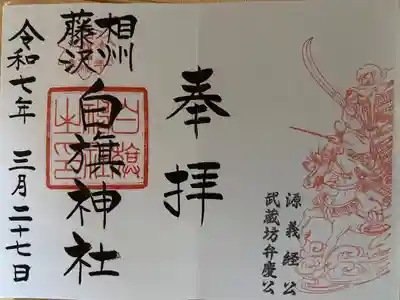 奉拝
相州
藤沢
白旗神社
令和七年 三月二十七日
源義経公
武蔵坊弁慶公